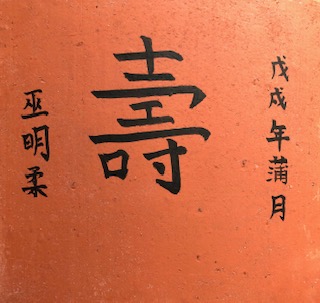 戊戌年蒲月
壽
巫明柔